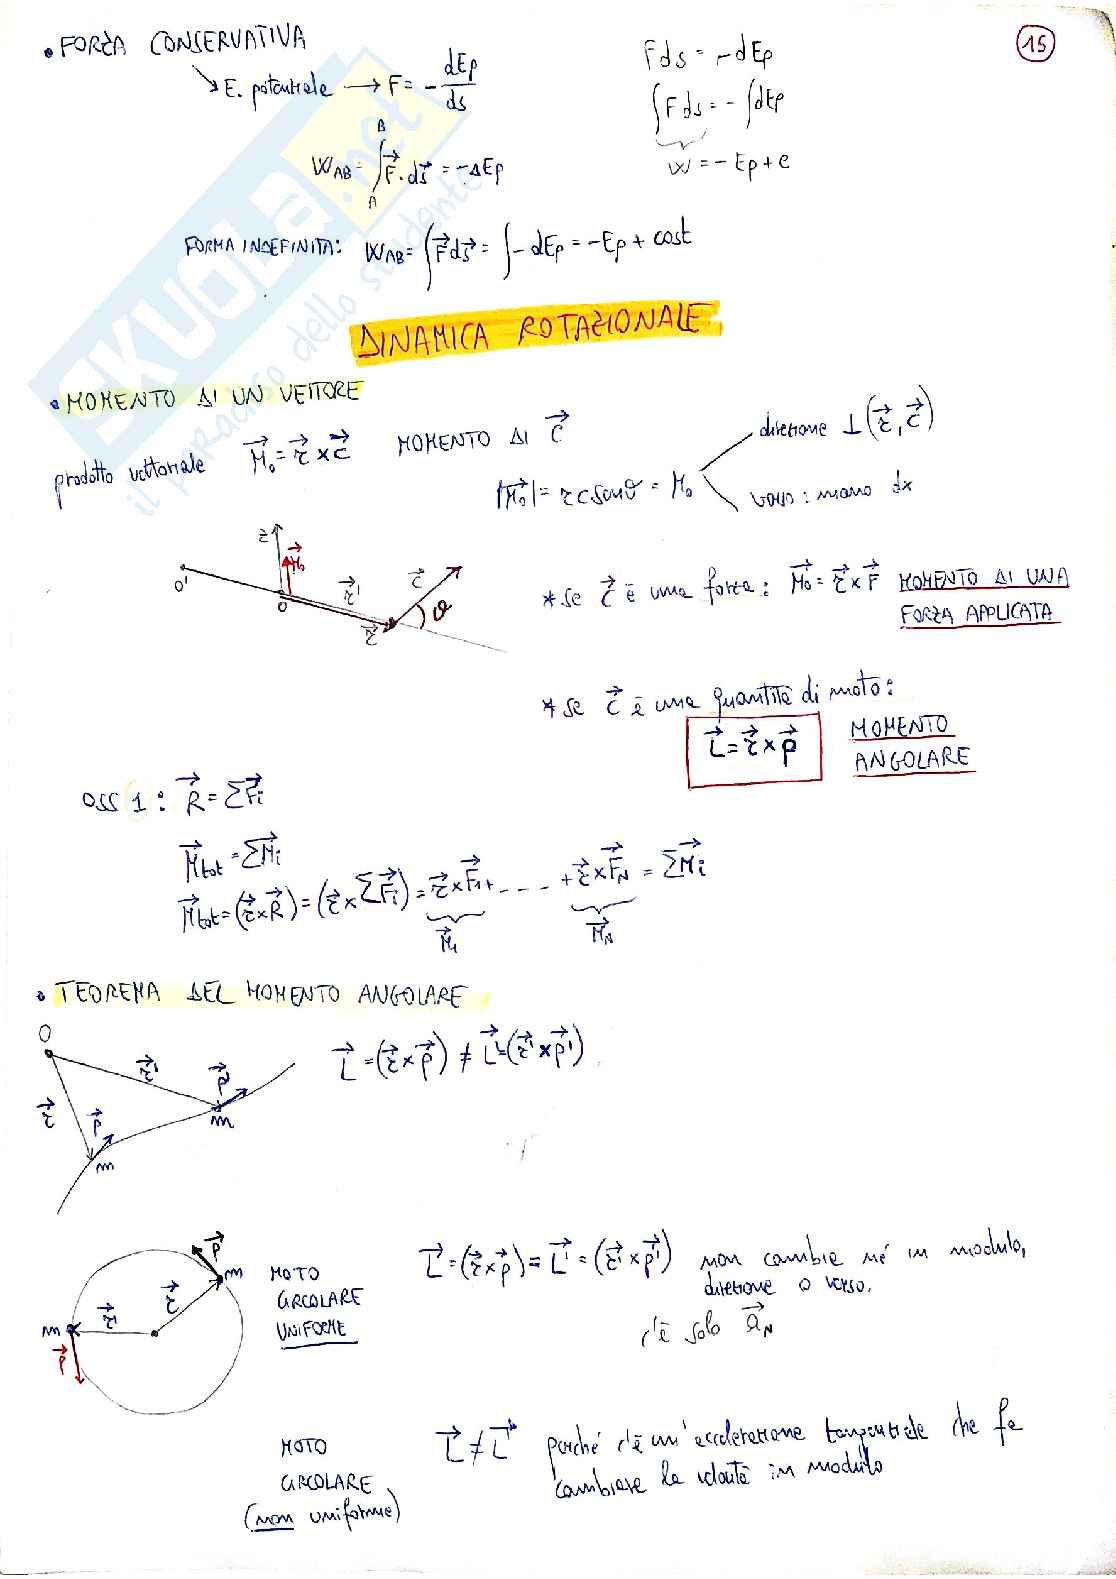 • FORZA CONSERVATIVA
15
E. potenziale → F = - dEp/ds
F ds = -dEp
∫F ds = - ∫dEp
W = - Ep + c
W_AB = ∫_A^B F⃗ · ds⃗ = -ΔEp
FORMA INDEFINITA: W_AB = ∫F⃗ ds⃗ = ∫- dEp = -Ep + cost
DINAMICA ROTAZIONALE
• MOMENTO DI UN VETTORE
prodotto vettoriale M⃗o = r⃗ × c⃗ MOMENTO DI c⃗
|M⃗o| = r c senθ = Mo
direzione ⊥ (r⃗, c⃗)
verso: mano dx
z M⃗o O' O r⃗' r⃗ c⃗ θ
* se c⃗ è una forza: M⃗o = r⃗ × F⃗ MOMENTO DI UNA
FORZA APPLICATA
* se c⃗ è una quantità di moto:
L⃗ = r⃗ × p⃗ MOMENTO
ANGOLARE
OSS 1: R⃗ = ΣF⃗i
M⃗tot = ΣM⃗i
M⃗tot = (r⃗ × R⃗) = (r⃗ × ΣF⃗i) = r⃗ × F⃗1 + - - - - + r⃗ × F⃗N = ΣM⃗i
M⃗1 M⃗N
• TEOREMA DEL MOMENTO ANGOLARE
O r⃗' r⃗ p⃗ m p⃗' m
L⃗ = (r⃗ × p⃗) ≠ L⃗' = (r⃗' × p⃗')
p⃗ m r⃗ r⃗' m p⃗
MOTO
CIRCOLARE
UNIFORME
L⃗ = (r⃗ × p⃗) = L⃗' = (r⃗' × p⃗') non cambia né in modulo,
direzione o verso.
c'è solo a⃗N
MOTO
CIRCOLARE
(non uniforme)
L⃗ ≠ L⃗' perché c'è un'accelerazione tangenziale che fa
cambiare la velocità in modulo
SKUOLA.net
il paradiso dello studente